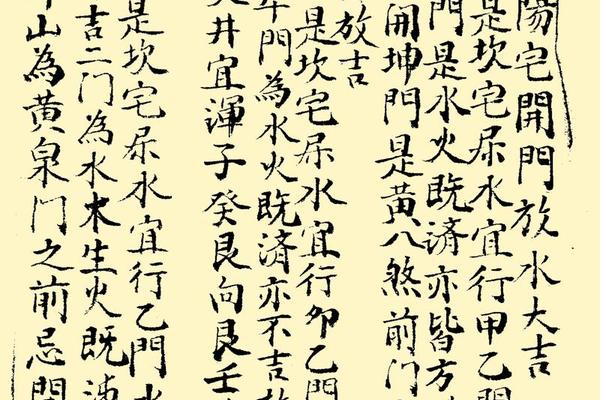 陽宅開門放水大吉
是坎宅屎水宜行甲乙門
門是水火既濟亦皆方
開坤門是黃八煞前門
放吉
是坎宅屎水宜行卯乙門
午門為水火既濟亦不吉放
天井宜渾子癸艮向艮壬
是坎宅屎水宜行乙門水
吉二門為水木生火既濟
山為黃泉門之前忌開